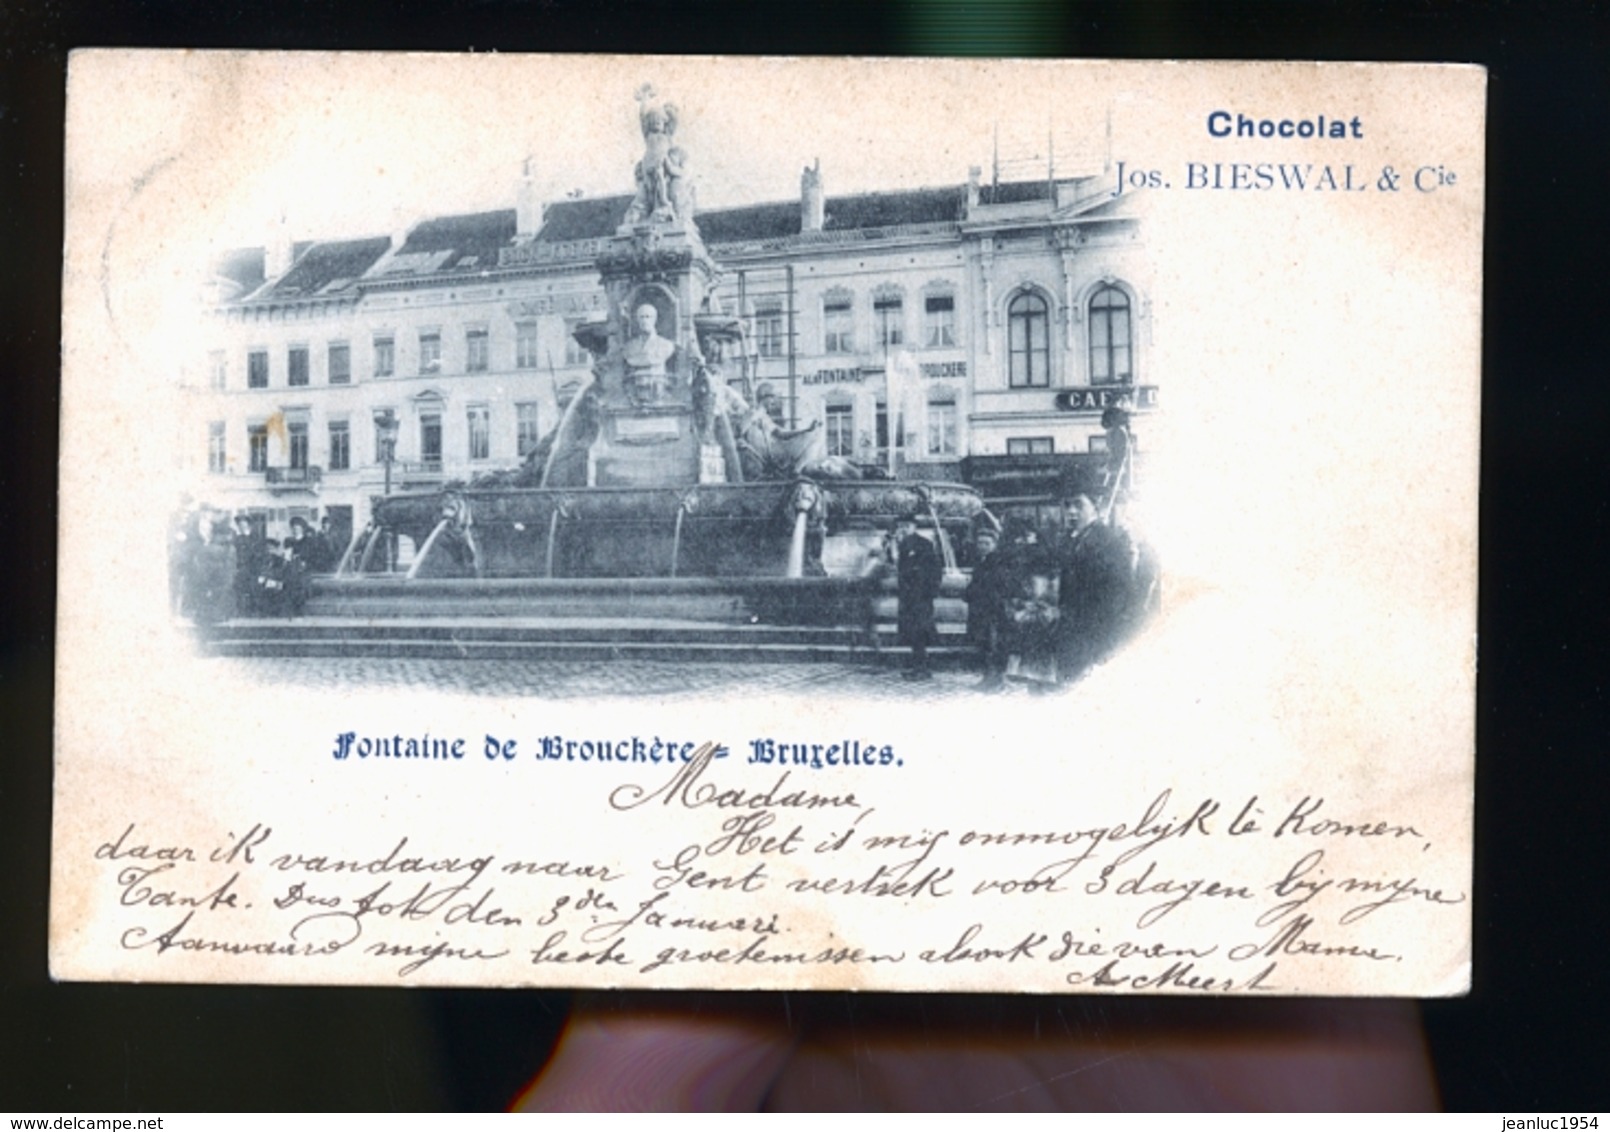 Chocolat
Jos. BIESWAL & Cie
A LA FONTAINE BROUCKERE
CAFÉ D
Fontaine de Brouckère = Bruxelles.
Madame,
Het is mij onmogelijk te komen,
daar ik vandaag naar Gent vertrek voor 3 dagen bij mijne
Tante. Dus tot den 3den Januari.
Aanvaard mijne beste groetenissen alsook die van Mama.
A Meert
delcampe.net
jeanluc1954